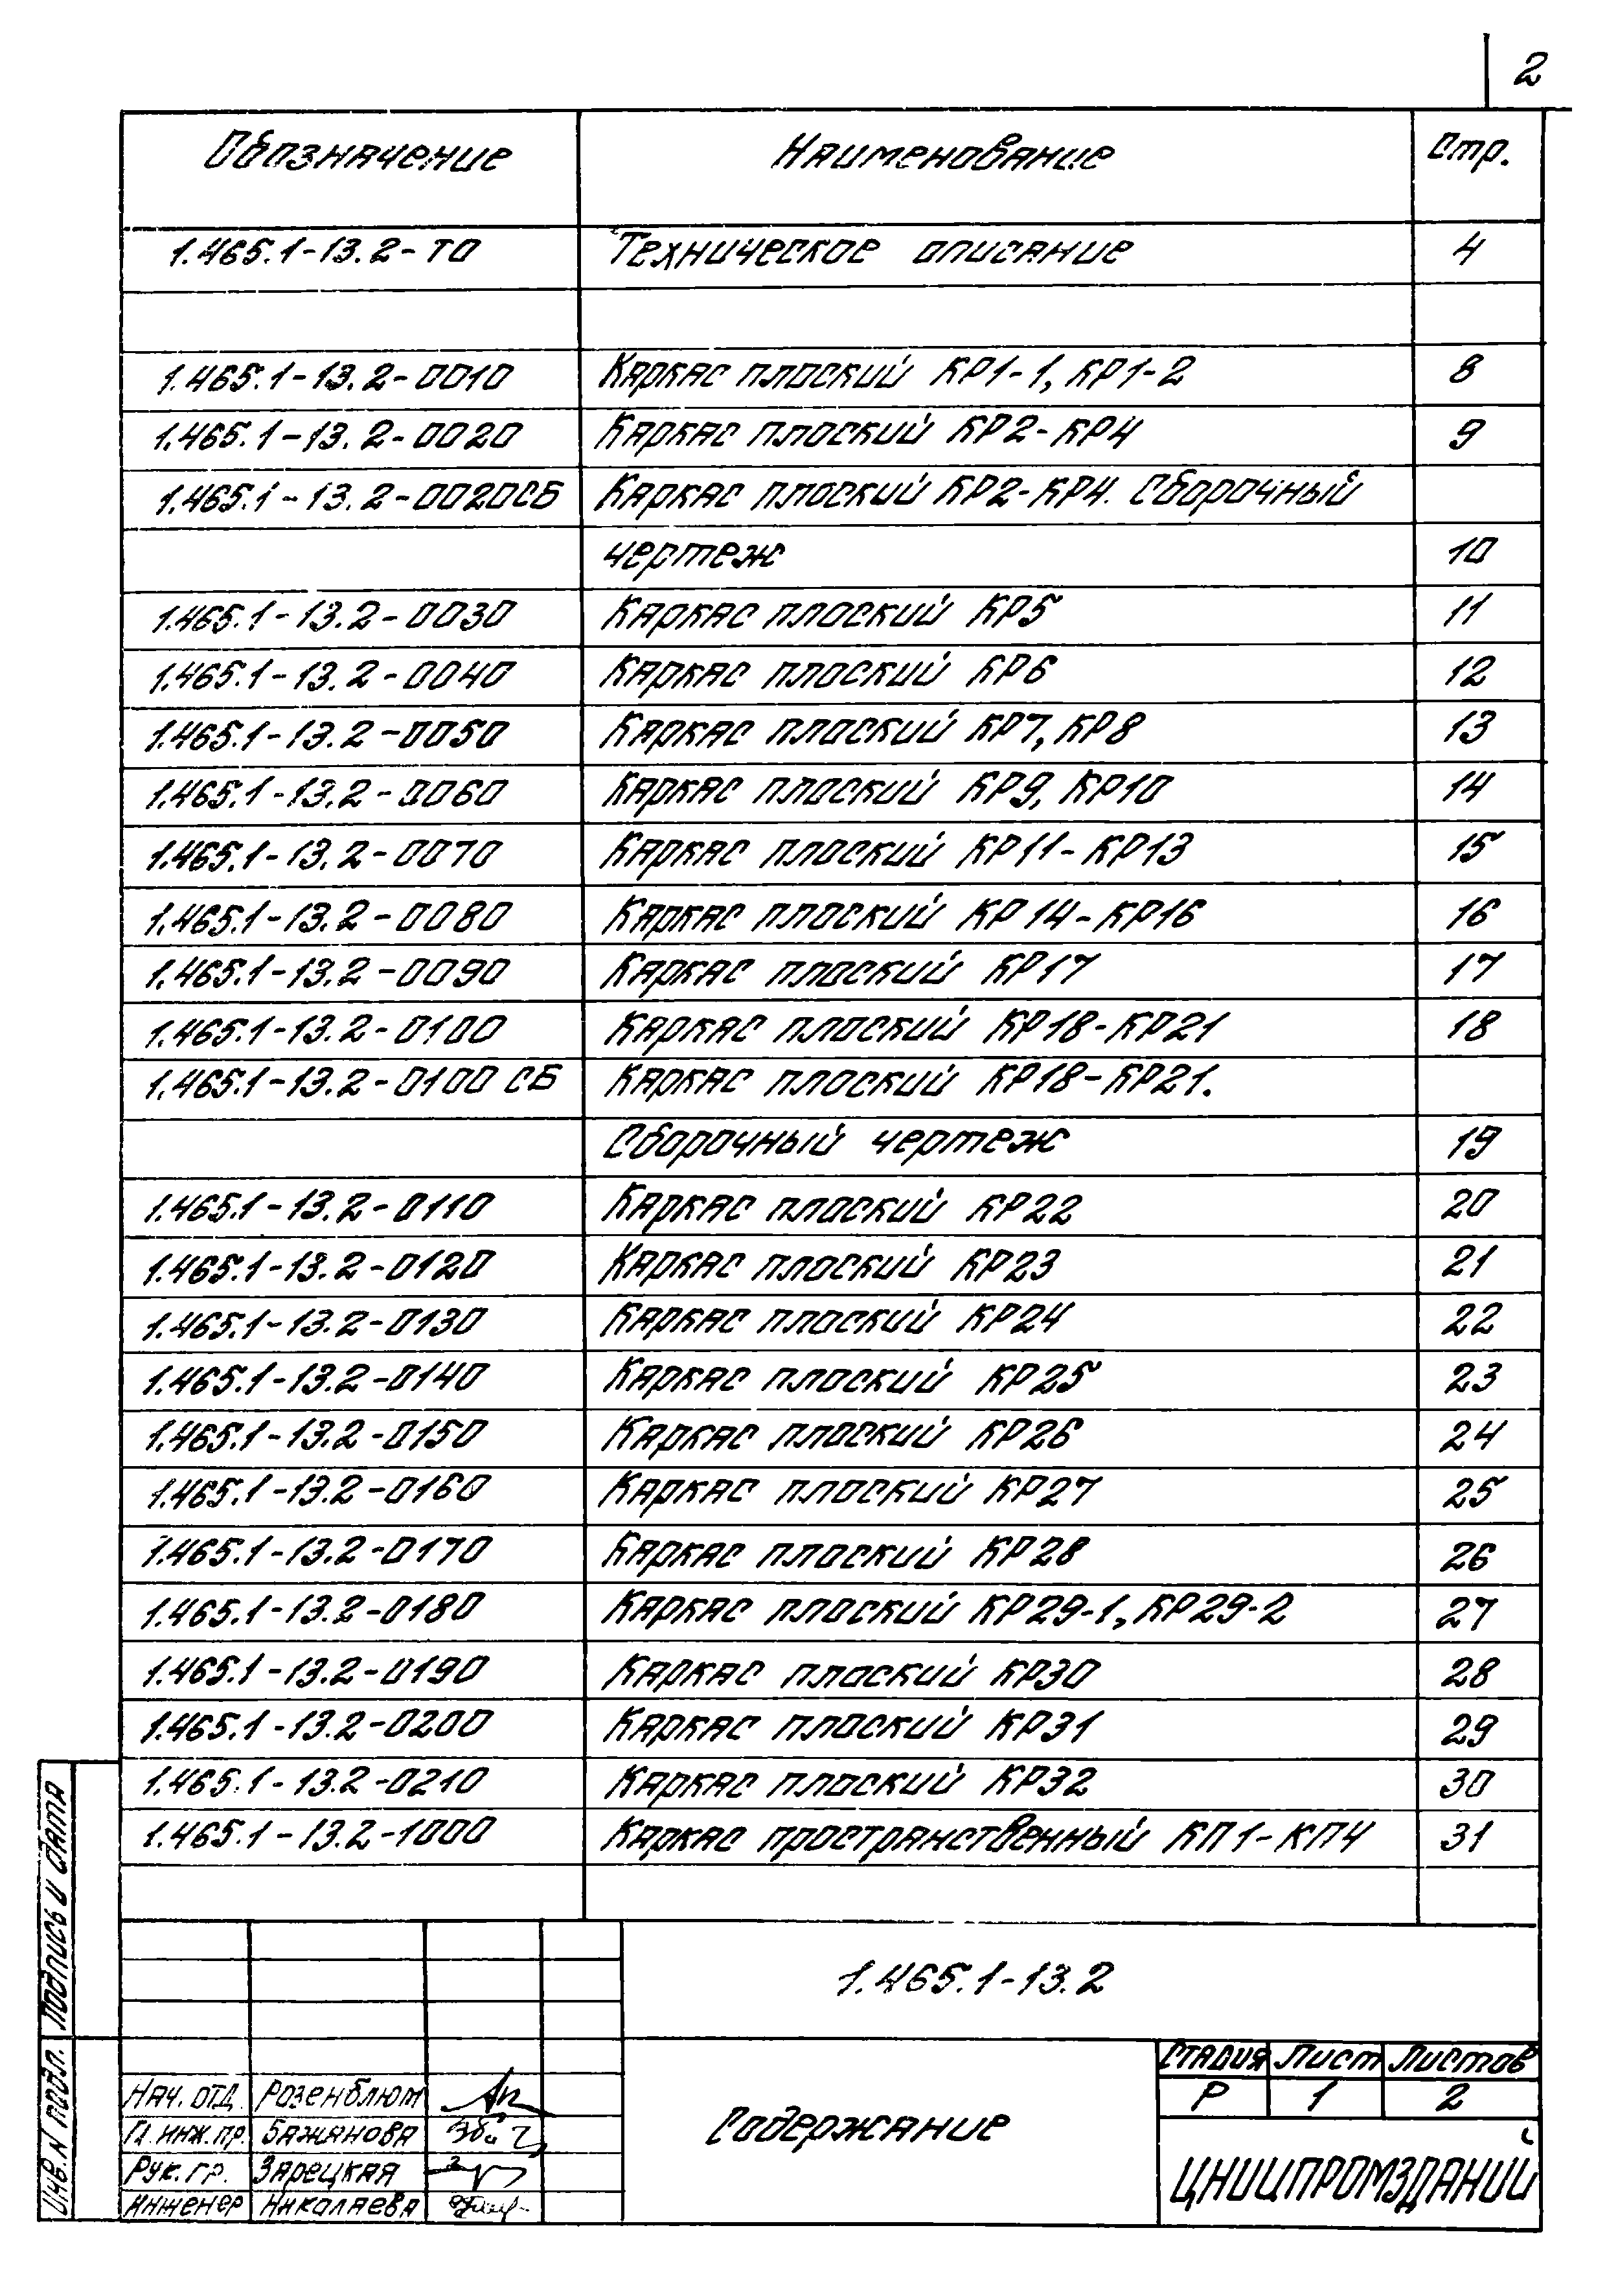 2
Обозначение Наименование Стр.
1.465.1-13.2-ТО Техническое описание 4
1.465.1-13.2-0010 Каркас плоский КР1-1, КР1-2 8
1.465.1-13.2-0020 Каркас плоский КР2-КР4 9
1.465.1-13.2-0020СБ Каркас плоский КР2-КР4. Сборочный
чертеж 10
1.465.1-13.2-0030 Каркас плоский КР5 11
1.465.1-13.2-0040 Каркас плоский КР6 12
1.465.1-13.2-0050 Каркас плоский КР7, КР8 13
1.465.1-13.2-0060 Каркас плоский КР9, КР10 14
1.465.1-13.2-0070 Каркас плоский КР11-КР13 15
1.465.1-13.2-0080 Каркас плоский КР14-КР16 16
1.465.1-13.2-0090 Каркас плоский КР17 17
1.465.1-13.2-0100 Каркас плоский КР18-КР21 18
1.465.1-13.2-0100 СБ Каркас плоский КР18-КР21.
Сборочный чертеж 19
1.465.1-13.2-0110 Каркас плоский КР22 20
1.465.1-13.2-0120 Каркас плоский КР23 21
1.465.1-13.2-0130 Каркас плоский КР24 22
1.465.1-13.2-0140 Каркас плоский КР25 23
1.465.1-13.2-0150 Каркас плоский КР26 24
1.465.1-13.2-0160 Каркас плоский КР27 25
1.465.1-13.2-0170 Каркас плоский КР28 26
1.465.1-13.2-0180 Каркас плоский КР29-1, КР29-2 27
1.465.1-13.2-0190 Каркас плоский КР30 28
1.465.1-13.2-0200 Каркас плоский КР31 29
1.465.1-13.2-0210 Каркас плоский КР32 30
1.465.1-13.2-1000 Каркас пространственный КП1-КП4 31
Подпись и дата
Инв. N подл.
1.465.1-13.2
Нач. отд. Розенблюм
Гл. инж. пр. Бажанова
Рук. гр. Зарецкая
Инженер Николаева
Содержание
Стадия Лист Листов
Р 1 2
ЦНИИПРОМЗДАНИЙ